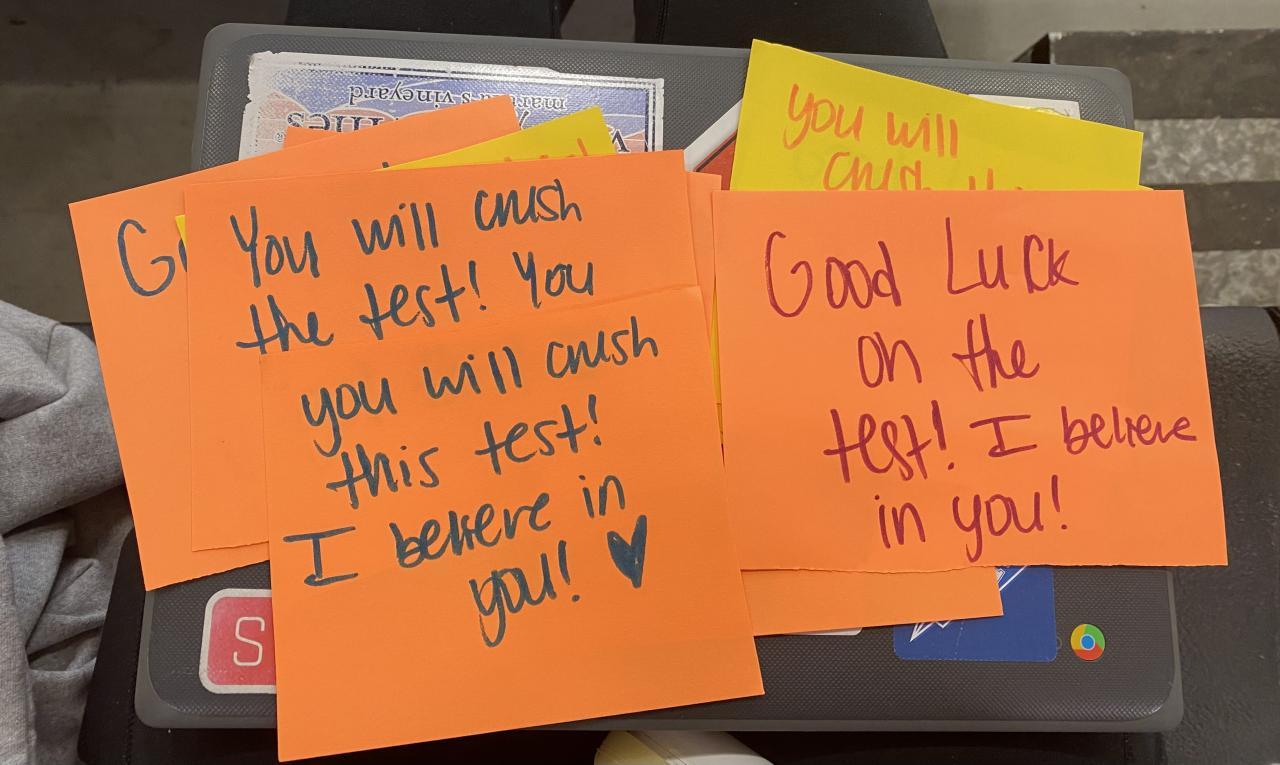 martha's vineyard
you will
crush
You will crush
the test! You
you will crush
this test!
I believe in
you!
Good Luck
on the
test! I believe
in you!
S